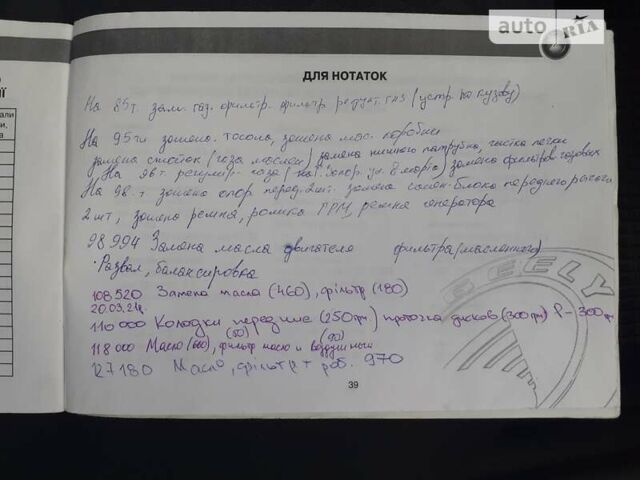 auto
RIA
ДЛЯ НОТАТОК
На 85т. зам. газ. фильтр. фильтр редукт. газ (устр. по кузову)
На 95т. замена. тосола, замена мас. коробки
замена стоек (газа маслен) замена нижнего патрубка, чистка печки
На 96т. регулир. газа (на Запор. ул. 8 марта) замена фильтров газовых
На 98.т. замена опор перед. 2шт. замена сален-блока переднего рычага
2шт, замена ремня, ролика ГРМ, ремня генератора
98 994 Замена масла двигателя фильтра (масленного)
Развал, балансировка
108 520 Замена масла (460), фільтр (180)
20.03.24р.
110 000 Колодки передние (250грн) проточка дисков (300грн) Р-300грн
(50) (90)
118 000 Масло (600), фильтр масло и Воздушный
127180 Масло, фільтр + роб. 970
39
GEELY